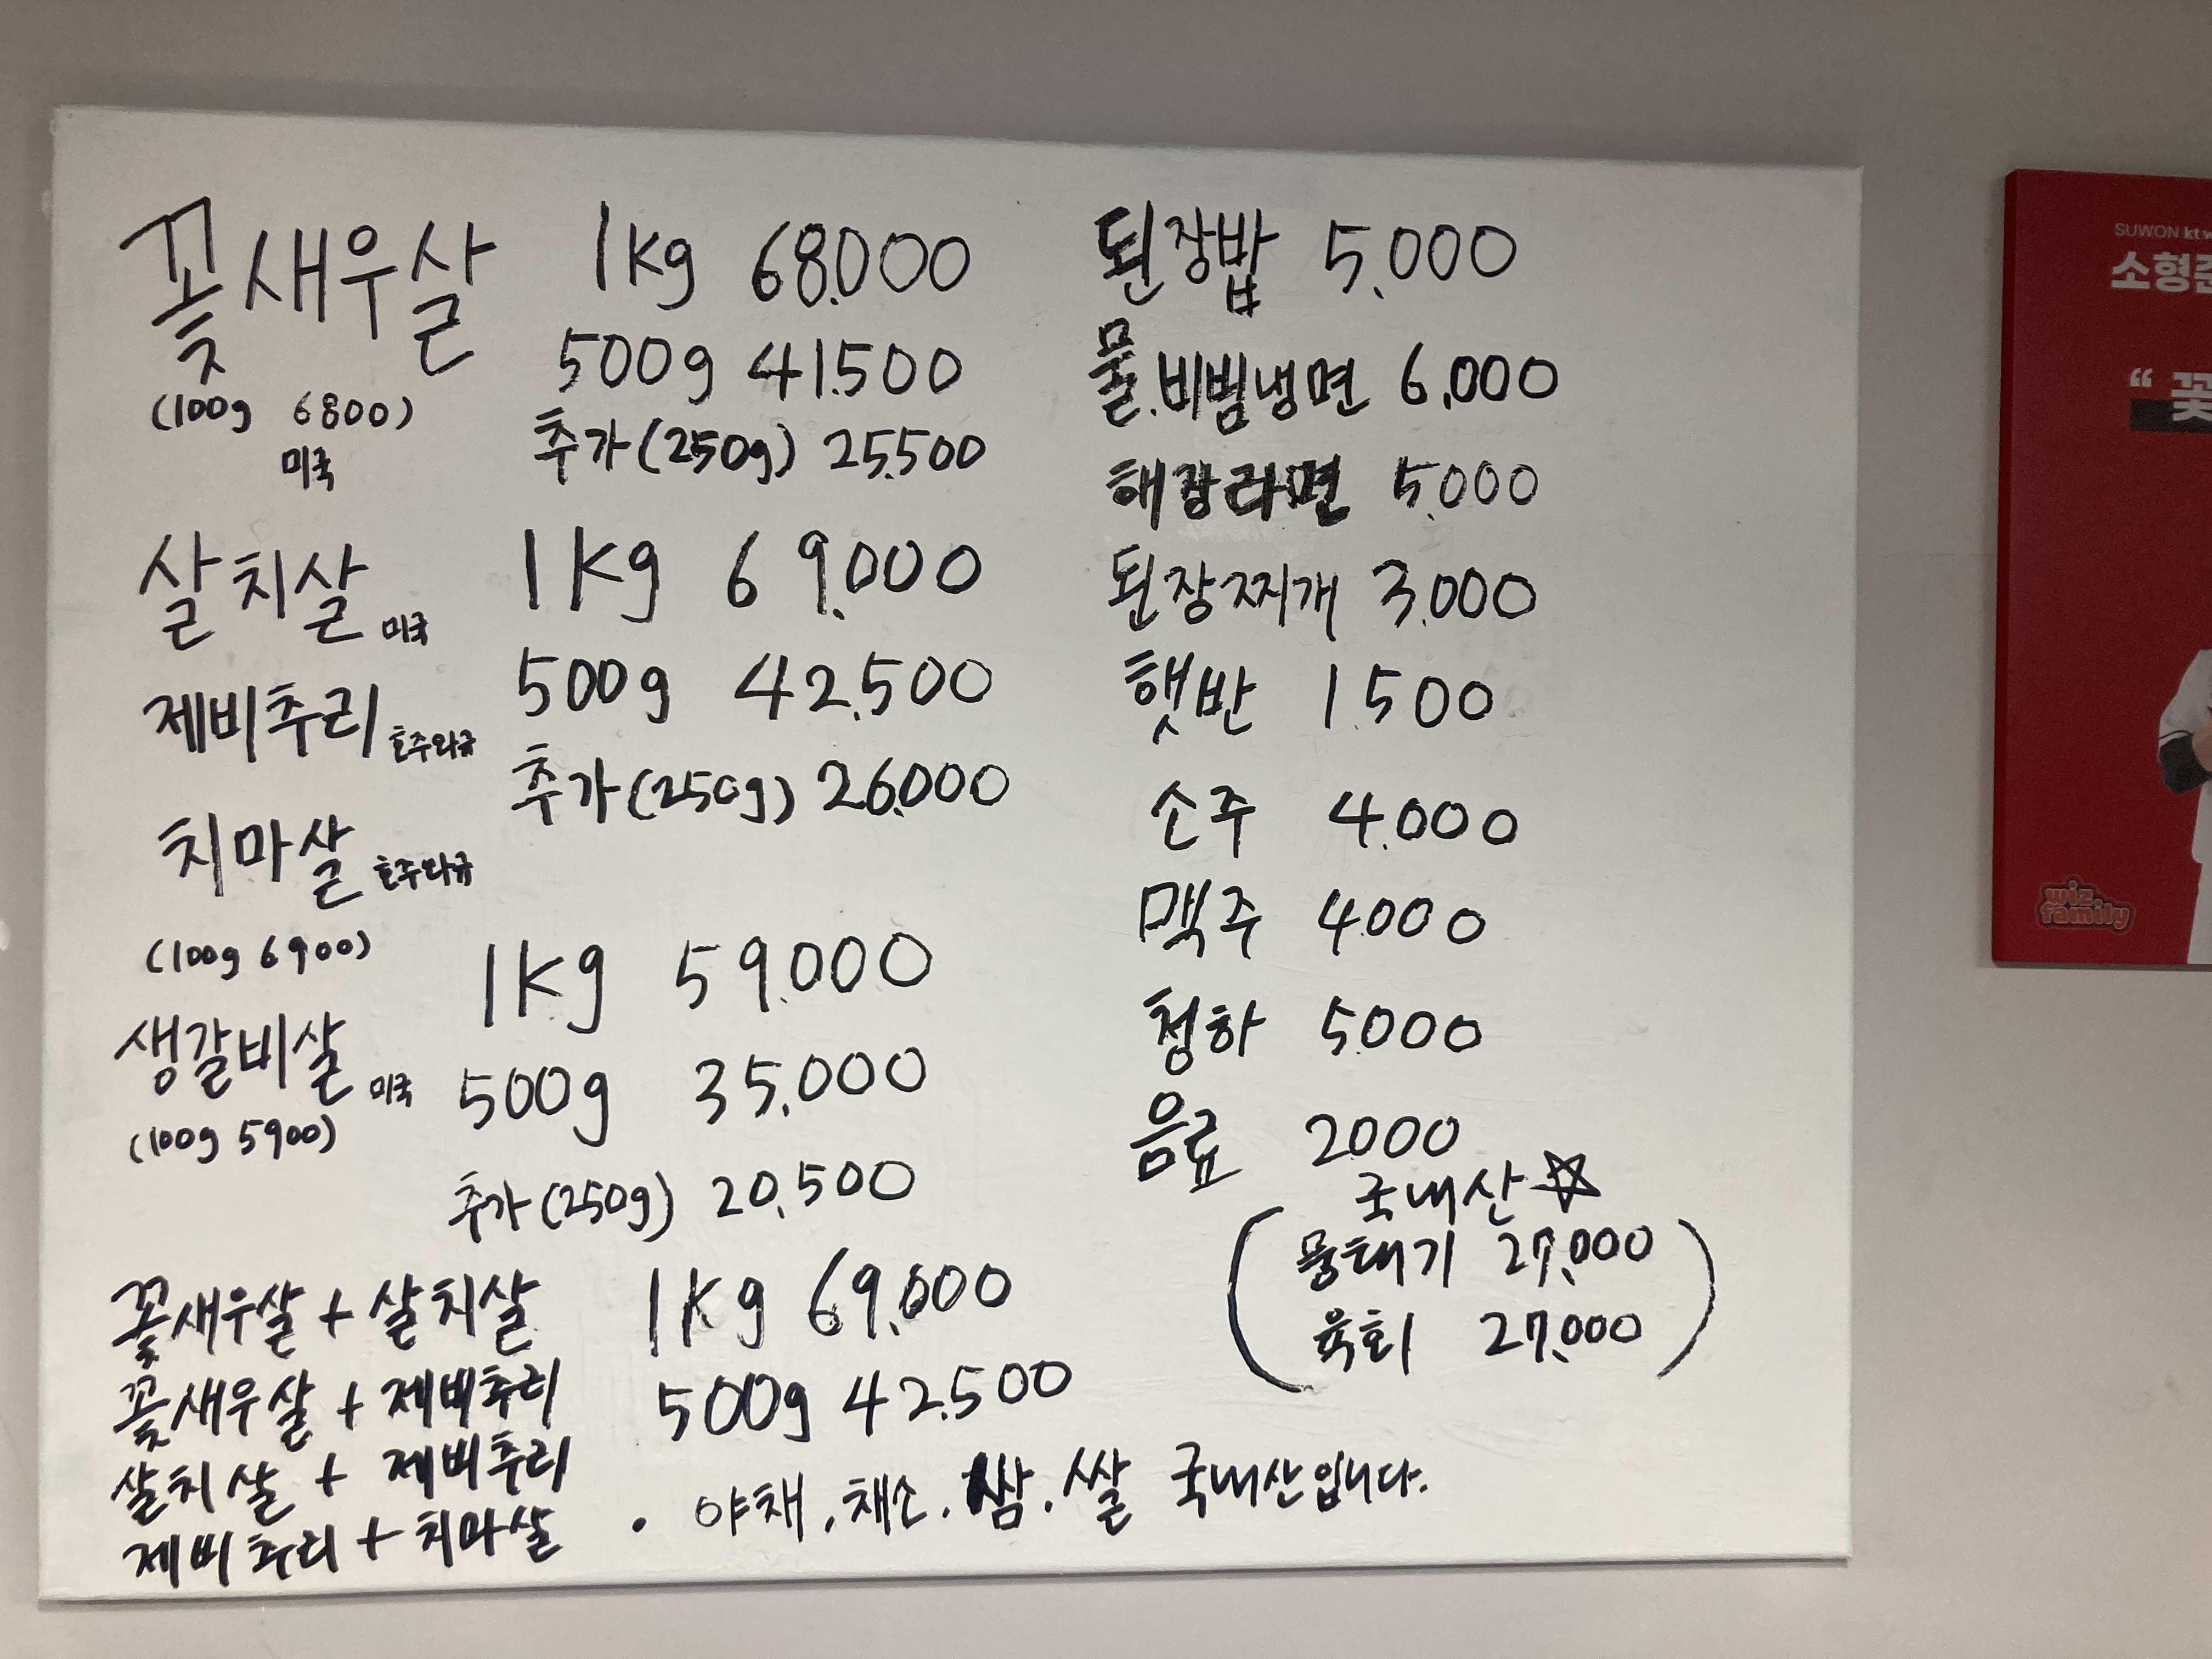 꽃새우살 1kg 68.000
500g 41.500
(100g 6800) 추가(250g) 25.500
미국
살치살 미국 1kg 69.000
제비추리 호주와규 500g 42.500
치마살 호주와규 추가(250g) 26.000
(100g 6900)
생갈비살 미국 1kg 59.000
(100g 5900) 500g 35.000
추가(250g) 20.500
꽃새우살 + 살치살 1kg 69.000
꽃새우살 + 제비추리 500g 42.500
살치살 + 제비추리
제비추리 + 치마살
된장밥 5.000
물.비빔냉면 6.000
해장라면 5.000
된장찌개 3.000
햇반 1.500
소주 4.000
맥주 4.000
청하 5.000
음료 2000
국내산☆
(뭉태기 27.000
육회 27.000)
• 야채.채소.쌈.쌀 국내산입니다.
SUWON kt
소형준
“ 꽃
wiz
family